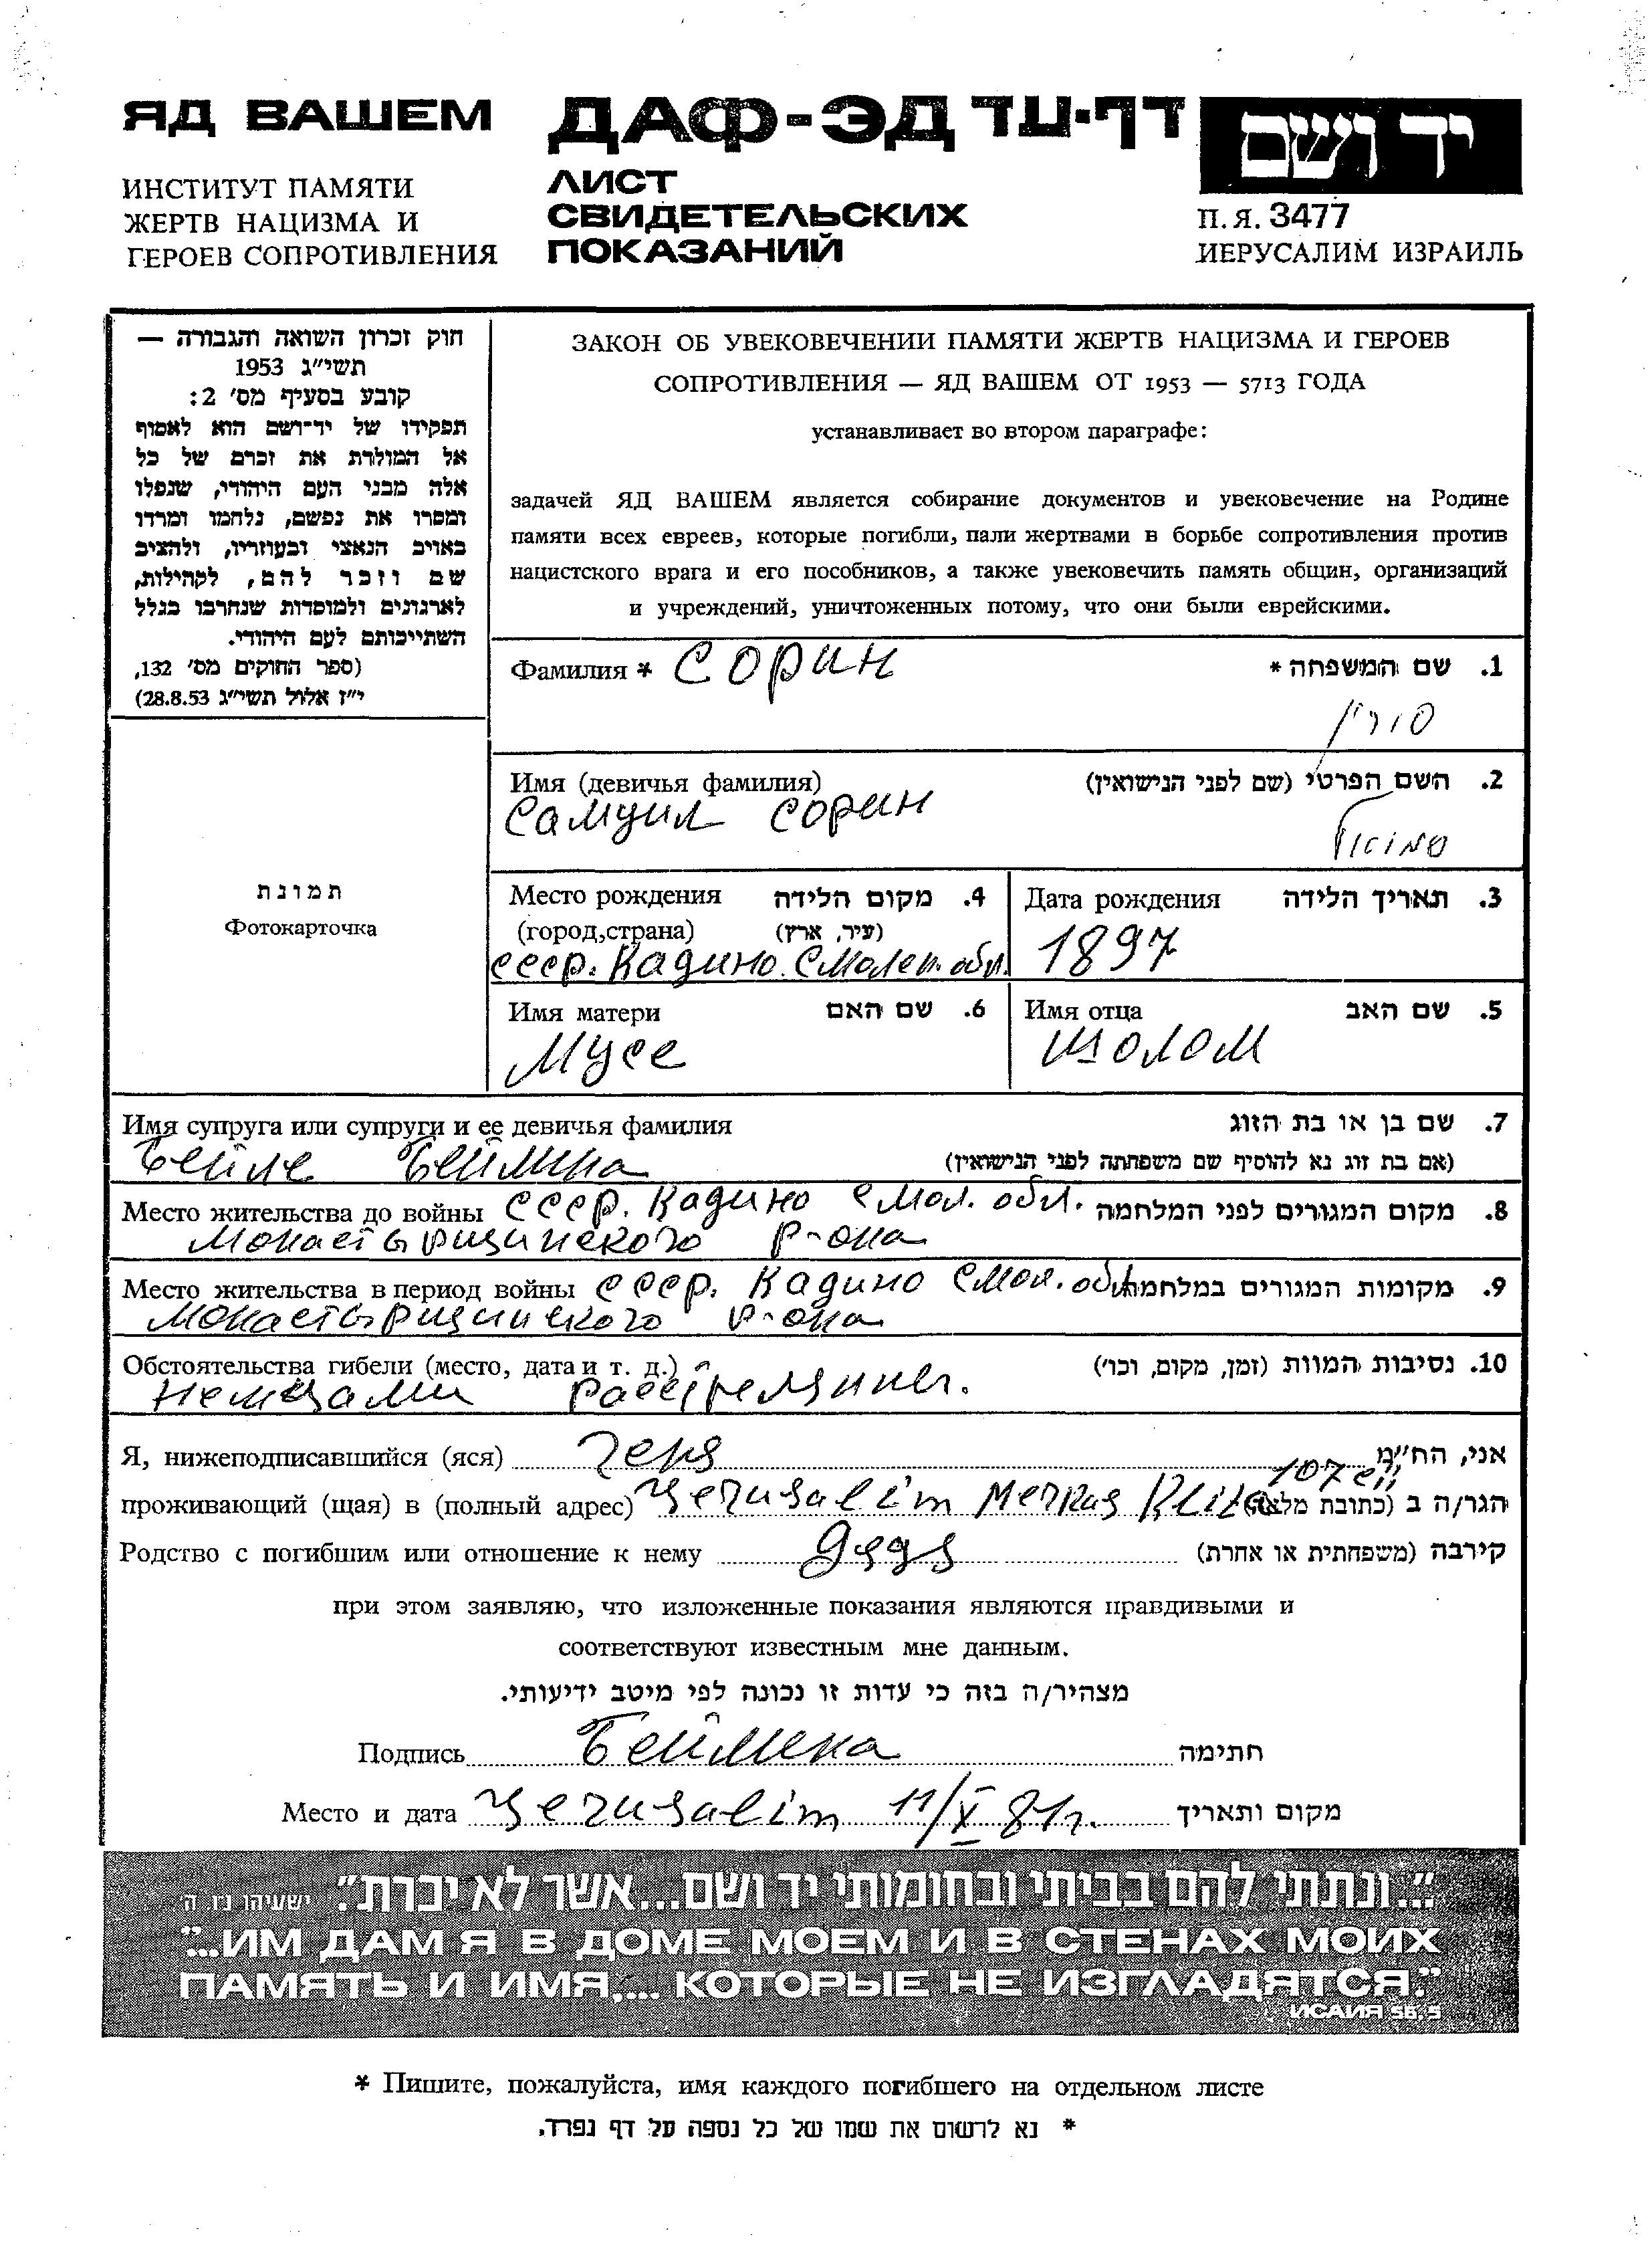 ЯД ВАШЕМ
ИНСТИТУТ ПАМЯТИ
ЖЕРТВ НАЦИЗМА И
ГЕРОЕВ СОПРОТИВЛЕНИЯ
ДАФ-ЭД דף-עד
ЛИСТ
СВИДЕТЕЛЬСКИХ
ПОКАЗАНИЙ
יד ושם
П.Я. 3477
ИЕРУСАЛИМ ИЗРАИЛЬ
חוק זכרון השואה והגבורה —
תשי״ג 1953
קובע בסעיף מס׳ 2:
תפקידו של יד־ושם הוא לאסוף
אל המולדת את זכרם של כל
אלה מבני העם היהודי, שנפלו
ומסרו את נפשם, נלחמו ומרדו
באויב הנאצי ובעוזריו, ולהציב
שם וזכר להם, לקהילות,
לארגונים ולמוסדות שנחרבו בגלל
השתייכותם לעם היהודי.
(ספר החוקים מס׳ 132,
י״ז אלול תשי״ג 28.8.53)
ЗАКОН ОБ УВЕКОВЕЧЕНИИ ПАМЯТИ ЖЕРТВ НАЦИЗМА И ГЕРОЕВ
СОПРОТИВЛЕНИЯ — ЯД ВАШЕМ ОТ 1953 — 5713 ГОДА
устанавливает во втором параграфе:
задачей ЯД ВАШЕМ является собирание документов и увековечение на Родине
памяти всех евреев, которые погибли, пали жертвами в борьбе сопротивления против
нацистского врага и его пособников, а также увековечить память общин, организаций
и учреждений, уничтоженных потому, что они были еврейскими.
Фамилия * Сорин 1. שם המשפחה *
סורין
Имя (девичья фамилия) 2. השם הפרטי (שם לפני הנישואין)
Самуил Сорин
תמונת
Фотокарточка
Место рождения 4. מקום הלידה
(город,страна) (עיר, ארץ)
ссср. Кадино. Смолен. обл.
Дата рождения 3. תאריך הלידה
1897
Имя матери 6. שם האם
Мусе
Имя отца 5. שם האב
Шолом
Имя супруга или супруги и ее девичья фамилия 7. שם בן או בת הזוג
Бейле Беймина (אם בת זוג נא להוסיף שם משפחתה לפני הנישואין)
Место жительства до войны ссср. Кадино Смол. обл. 8. מקום המגורים לפני המלחמה
Монастырщинского р-она
Место жительства в период войны ссср. Кадино Смол. обл. 9. מקומות המגורים במלחמה
Монастырщинского р-она
Обстоятельства гибели (место, дата и т. д.) 10. נסיבות המוות (זמן, מקום, וכו׳)
Немцами
Я, нижеподписавшийся (яся) Геня אני, הח״מ
проживающий (щая) в (полный адрес) Yerusalim Merkas Klita 107 הגר/ה ב (כתובת מלאה)
Родство с погибшим или отношение к нему дядя קירבה (משפחתית או אחרת)
при этом заявляю, что изложенные показания являются правдивыми и
соответствуют известным мне данным.
מצהיר/ה בזה כי עדות זו נכונה לפי מיטב ידיעותי.
Подпись Беймина חתימה
Место и дата Yerusalim 11/X 81г. מקום ותאריך
"...ונתתי להם בביתי ובחומותי יד ושם...אשר לא יכרת". ישעיהו נ״ו, ה׳
"...ИМ ДАМ Я В ДОМЕ МОЕМ И В СТЕНАХ МОИХ
ПАМЯТЬ И ИМЯ.... КОТОРЫЕ НЕ ИЗГЛАДЯТСЯ."
ИСАИЯ 56, 5
* Пишите, пожалуйста, имя каждого погибшего на отдельном листе
* נא לרשום את שמו של כל נספה על דף נפרד.